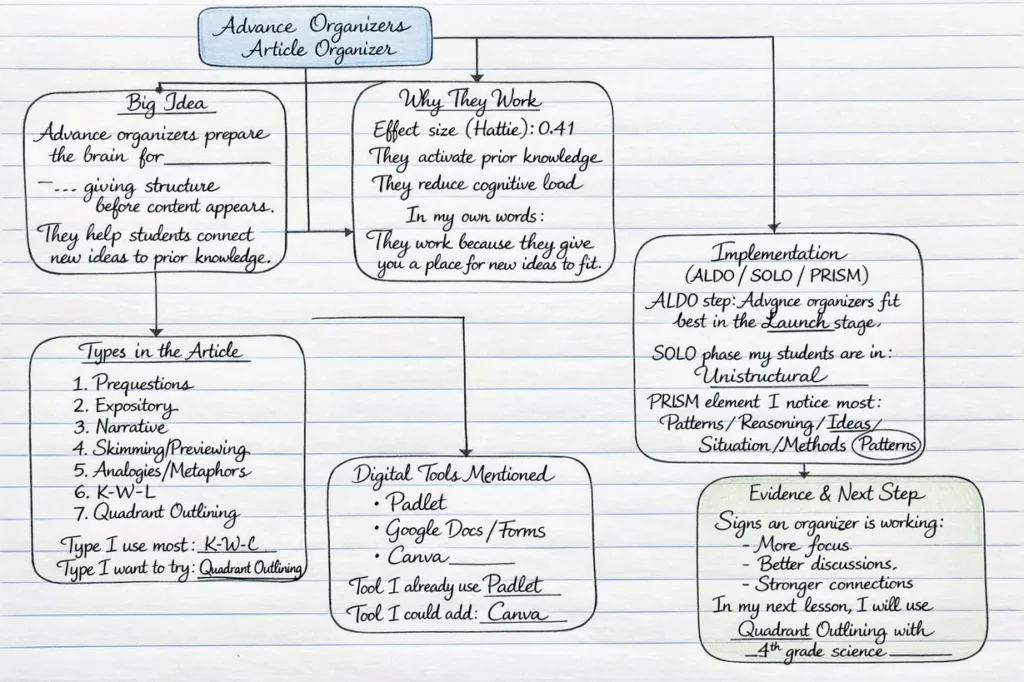 Advance Organizers
Article Organizer
Big Idea
Advance organizers prepare
the brain for__________
–... giving structure
before content appears.
They help students connect
new ideas to prior knowledge.
Why They Work
Effect size (Hattie): 0.41
They activate prior knowledge
They reduce cognitive load
In my own words:
They work because they give
you a place for new ideas to fit.
Implementation
(ALDO / SOLO / PRISM)
ALDO step: Advgnce organizers fit
best in the Launch stage.
SOLO phase my students are in:
Unistructural
PRISM element I notice most:
Patterns / Reasoning / Ideas /
Situation / Methods Patterns
Types in the Article
1. Prequestions
2. Expository
3. Narrative
4. Skimming/Previewing
5. Analogies/Metaphors
6. K-W-L
7. Quadrant Outlining
Type I use most: K-W-C
Type I want to try: Quadrant Outlining
Digital Tools Mentioned
• Padlet
• Google Docs / Forms
• Canva______
Tool I already use Padlet
Tool I could add: Canva
Evidence & Next Step
Signs an organizer is working:
- More focus
- Better discussions,
- Stronger connections
In my next lesson, I will use
Quadrant Outlining with
4th grade science ______